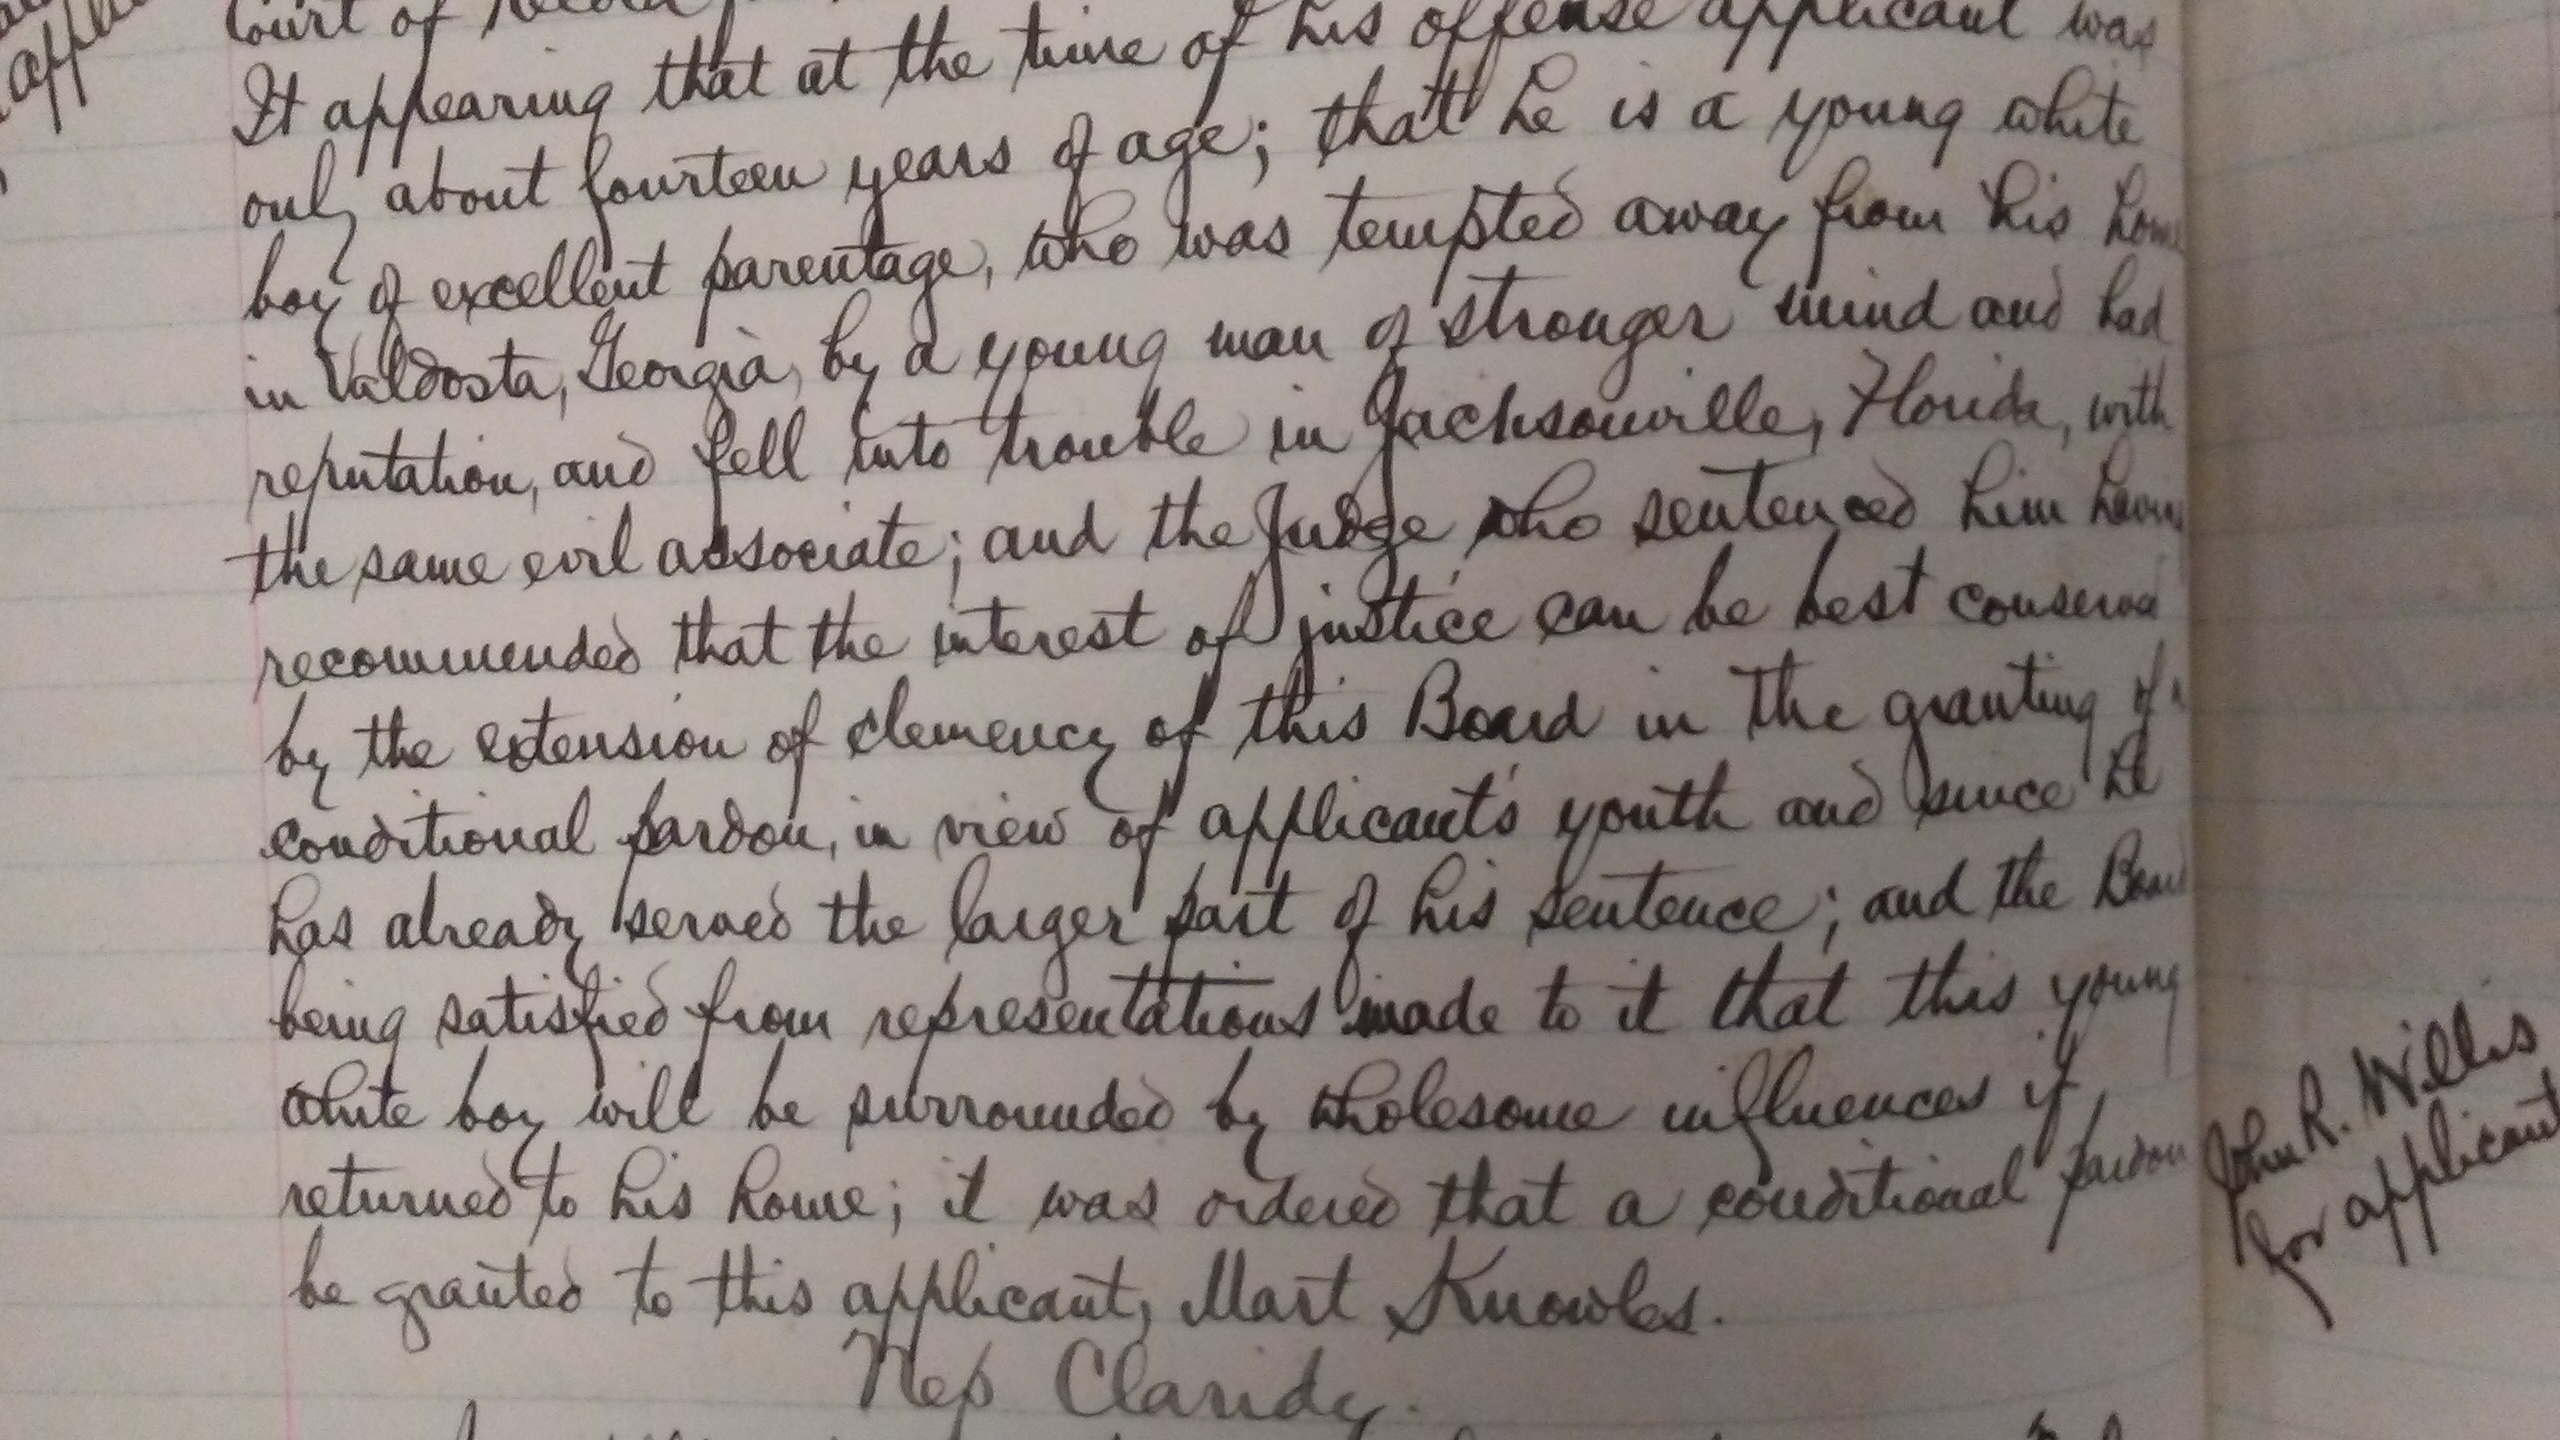 Court of
It appearing that at the time of his offense applicant was
only about fourteen years of age; that he is a young white
boy of excellent parentage, who was tempted away from his home
in Valdosta, Georgia, by a young man of stronger mind and bad
reputation, and fell into trouble in Jacksonville, Florida, with
the same evil associate; and the Judge who sentenced him having
recommended that the interest of justice can be best conserved
by the extension of clemency of this Board in the granting of a
conditional pardon, in view of applicant's youth and since he
has already served the larger part of his sentence; and the Board
being satisfied from representations made to it that this young
white boy will be surrounded by wholesome influences if
returned to his home; it was ordered that a conditional pardon
be granted to this applicant, Mart Knowles.
Hep Clandy.
John R. Willis
For applicant